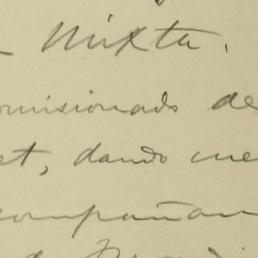 Mixta.
omisionado de
et, dando cue
compañan